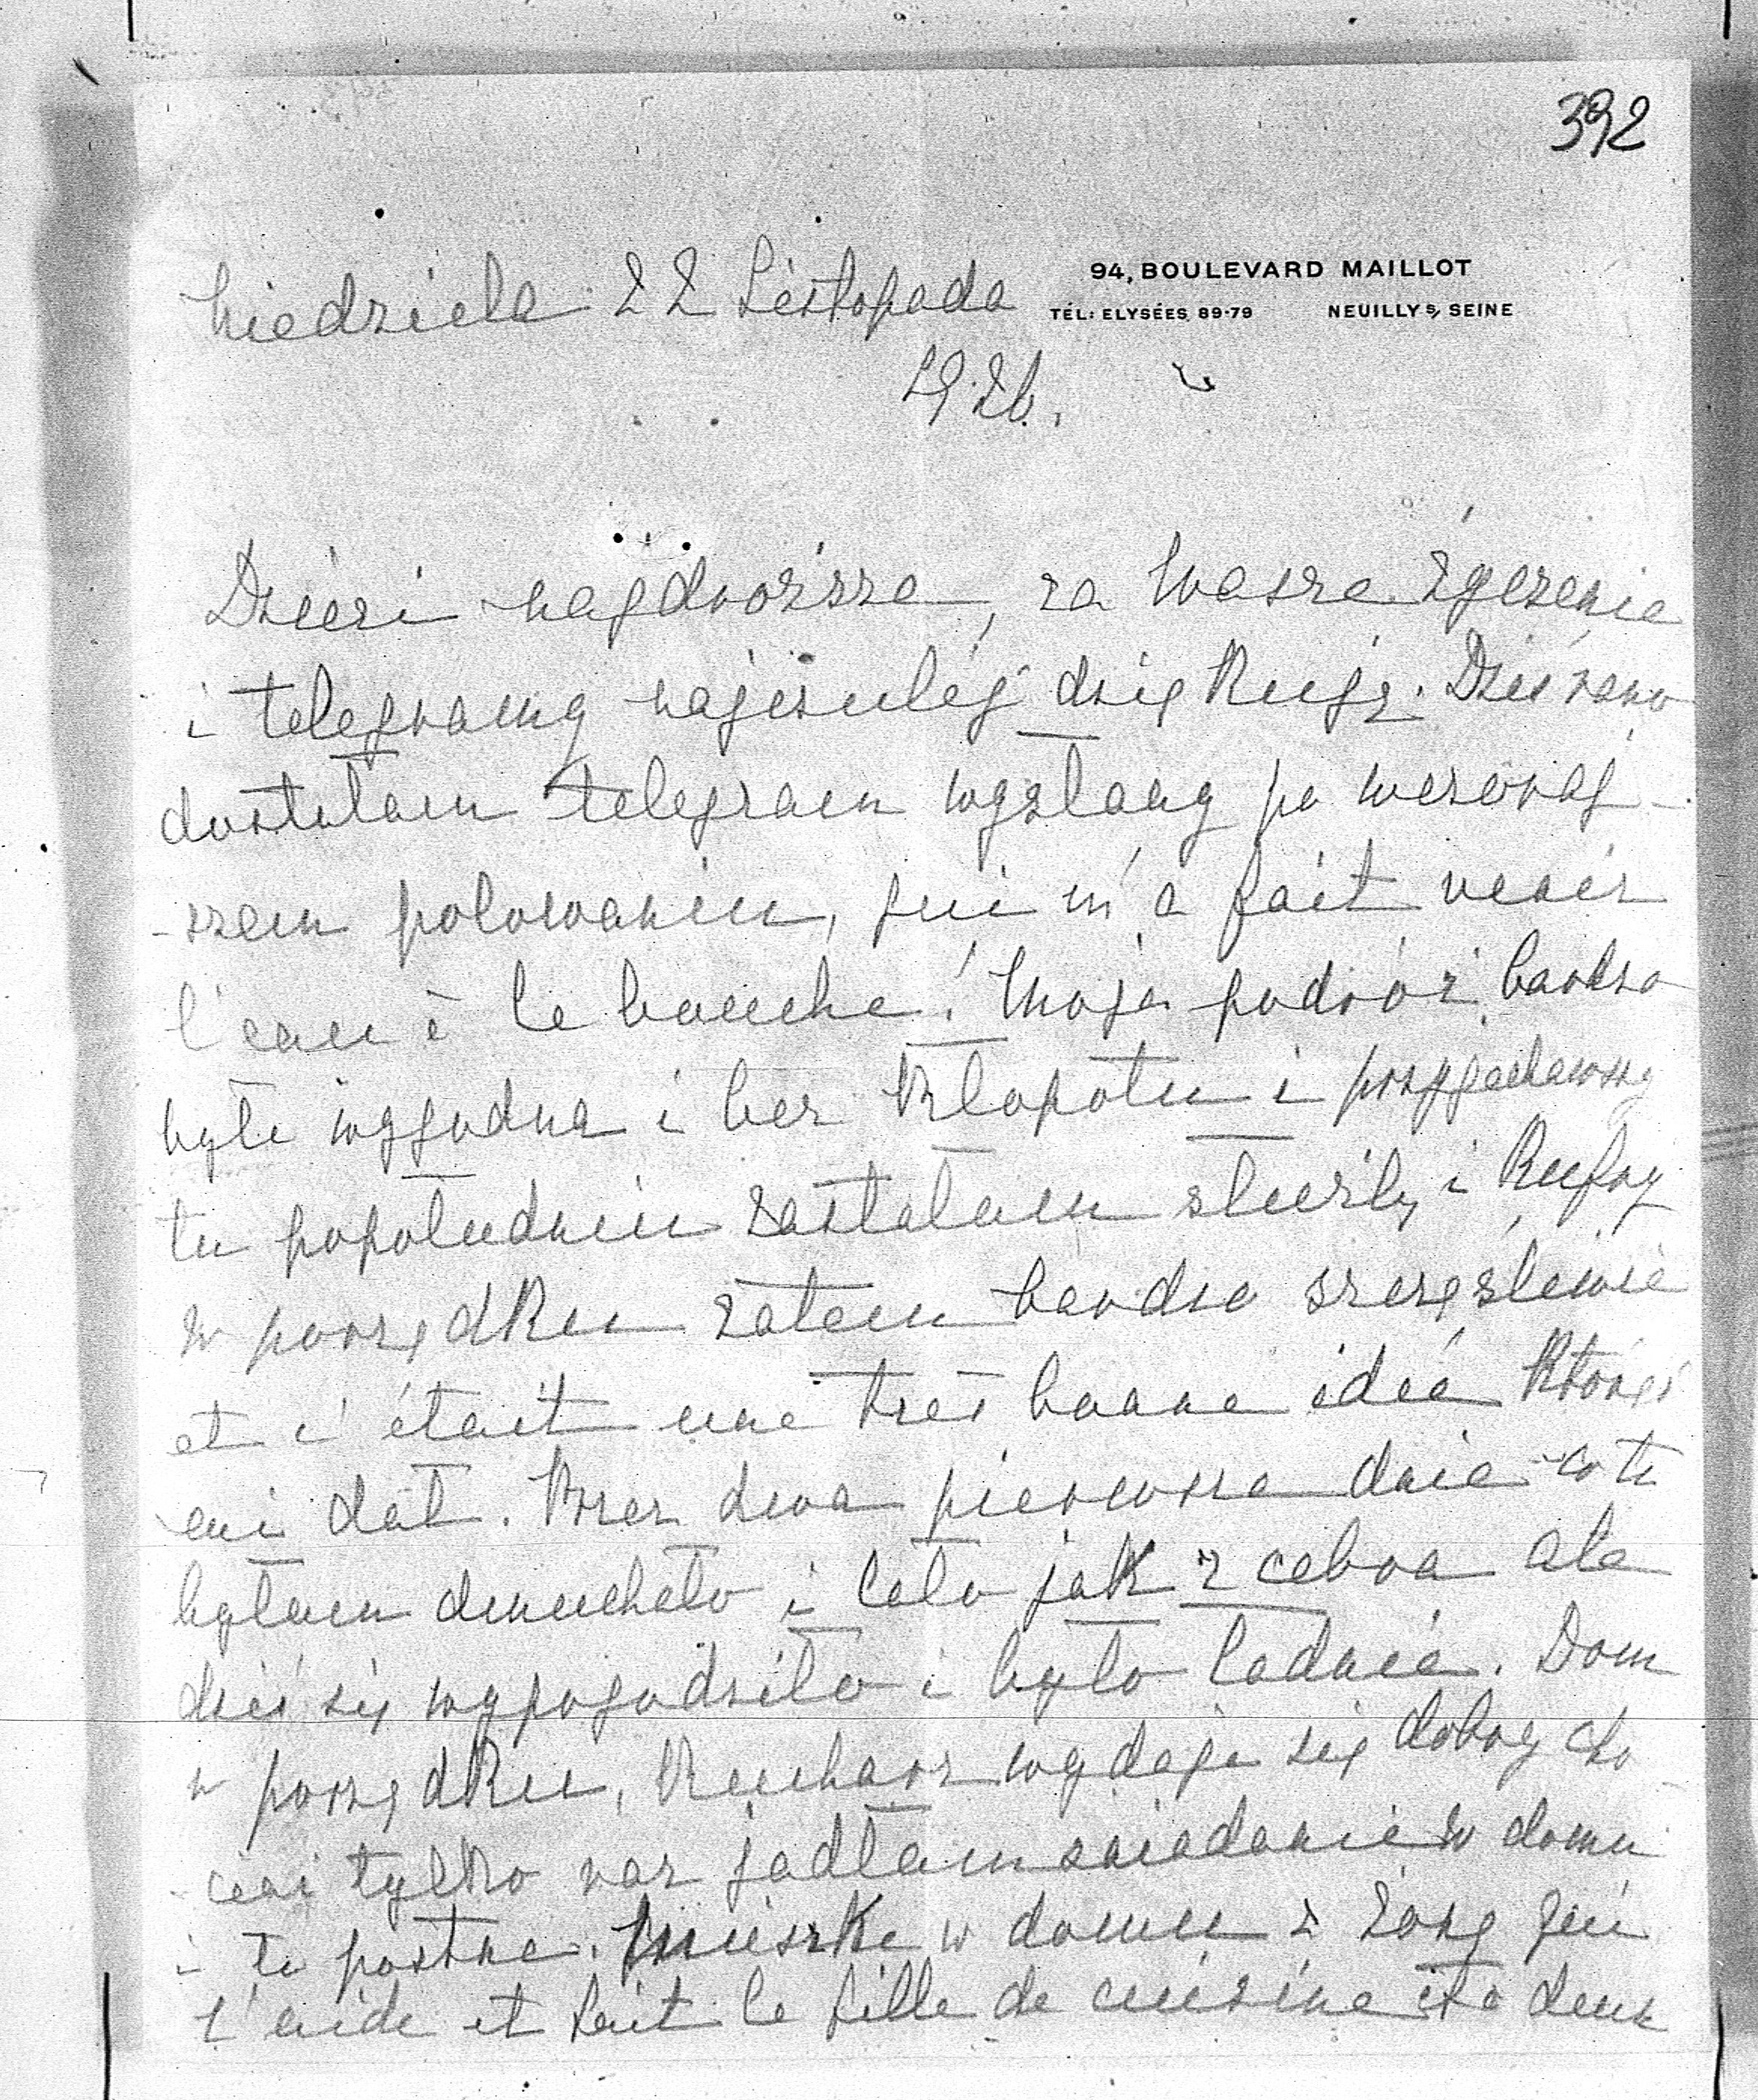 392
94, BOULEVARD MAILLOT
TÉL: ELYSÉES 89-79 NEUILLY S/ SEINE
Niedziela 22 Listopada
1926.
Dzieci najdroższe, za Wasze życzenie
i telegramy najczulej dziękuję. Dziś rano
dostałam telegram wysłany po wczoraj-
-szem polowaniu, qui m'a fait venir
l'eau à la bouche! Moja podróż bardzo
była wygodna i bez kłopotu i przyjechawszy
tu popołudniu zastałam służbę i kufry
w porządku zatem bardzo szczęśliwie
et c'était une très bonne idée któreś
mi dał. Przez dwa pierwsze dnie co tu
byłam dmuchało i lało jak z cebra ale
dziś się wypogodziło i było ładnie. Dom
w porządku, Kucharz wydaje się dobry cho-
-ciaż tylko raz jadłam śniadanie w domu
i to postne. Mieszka w domu z żoną qui
l'aide et fait la fille de cuisine et à deux